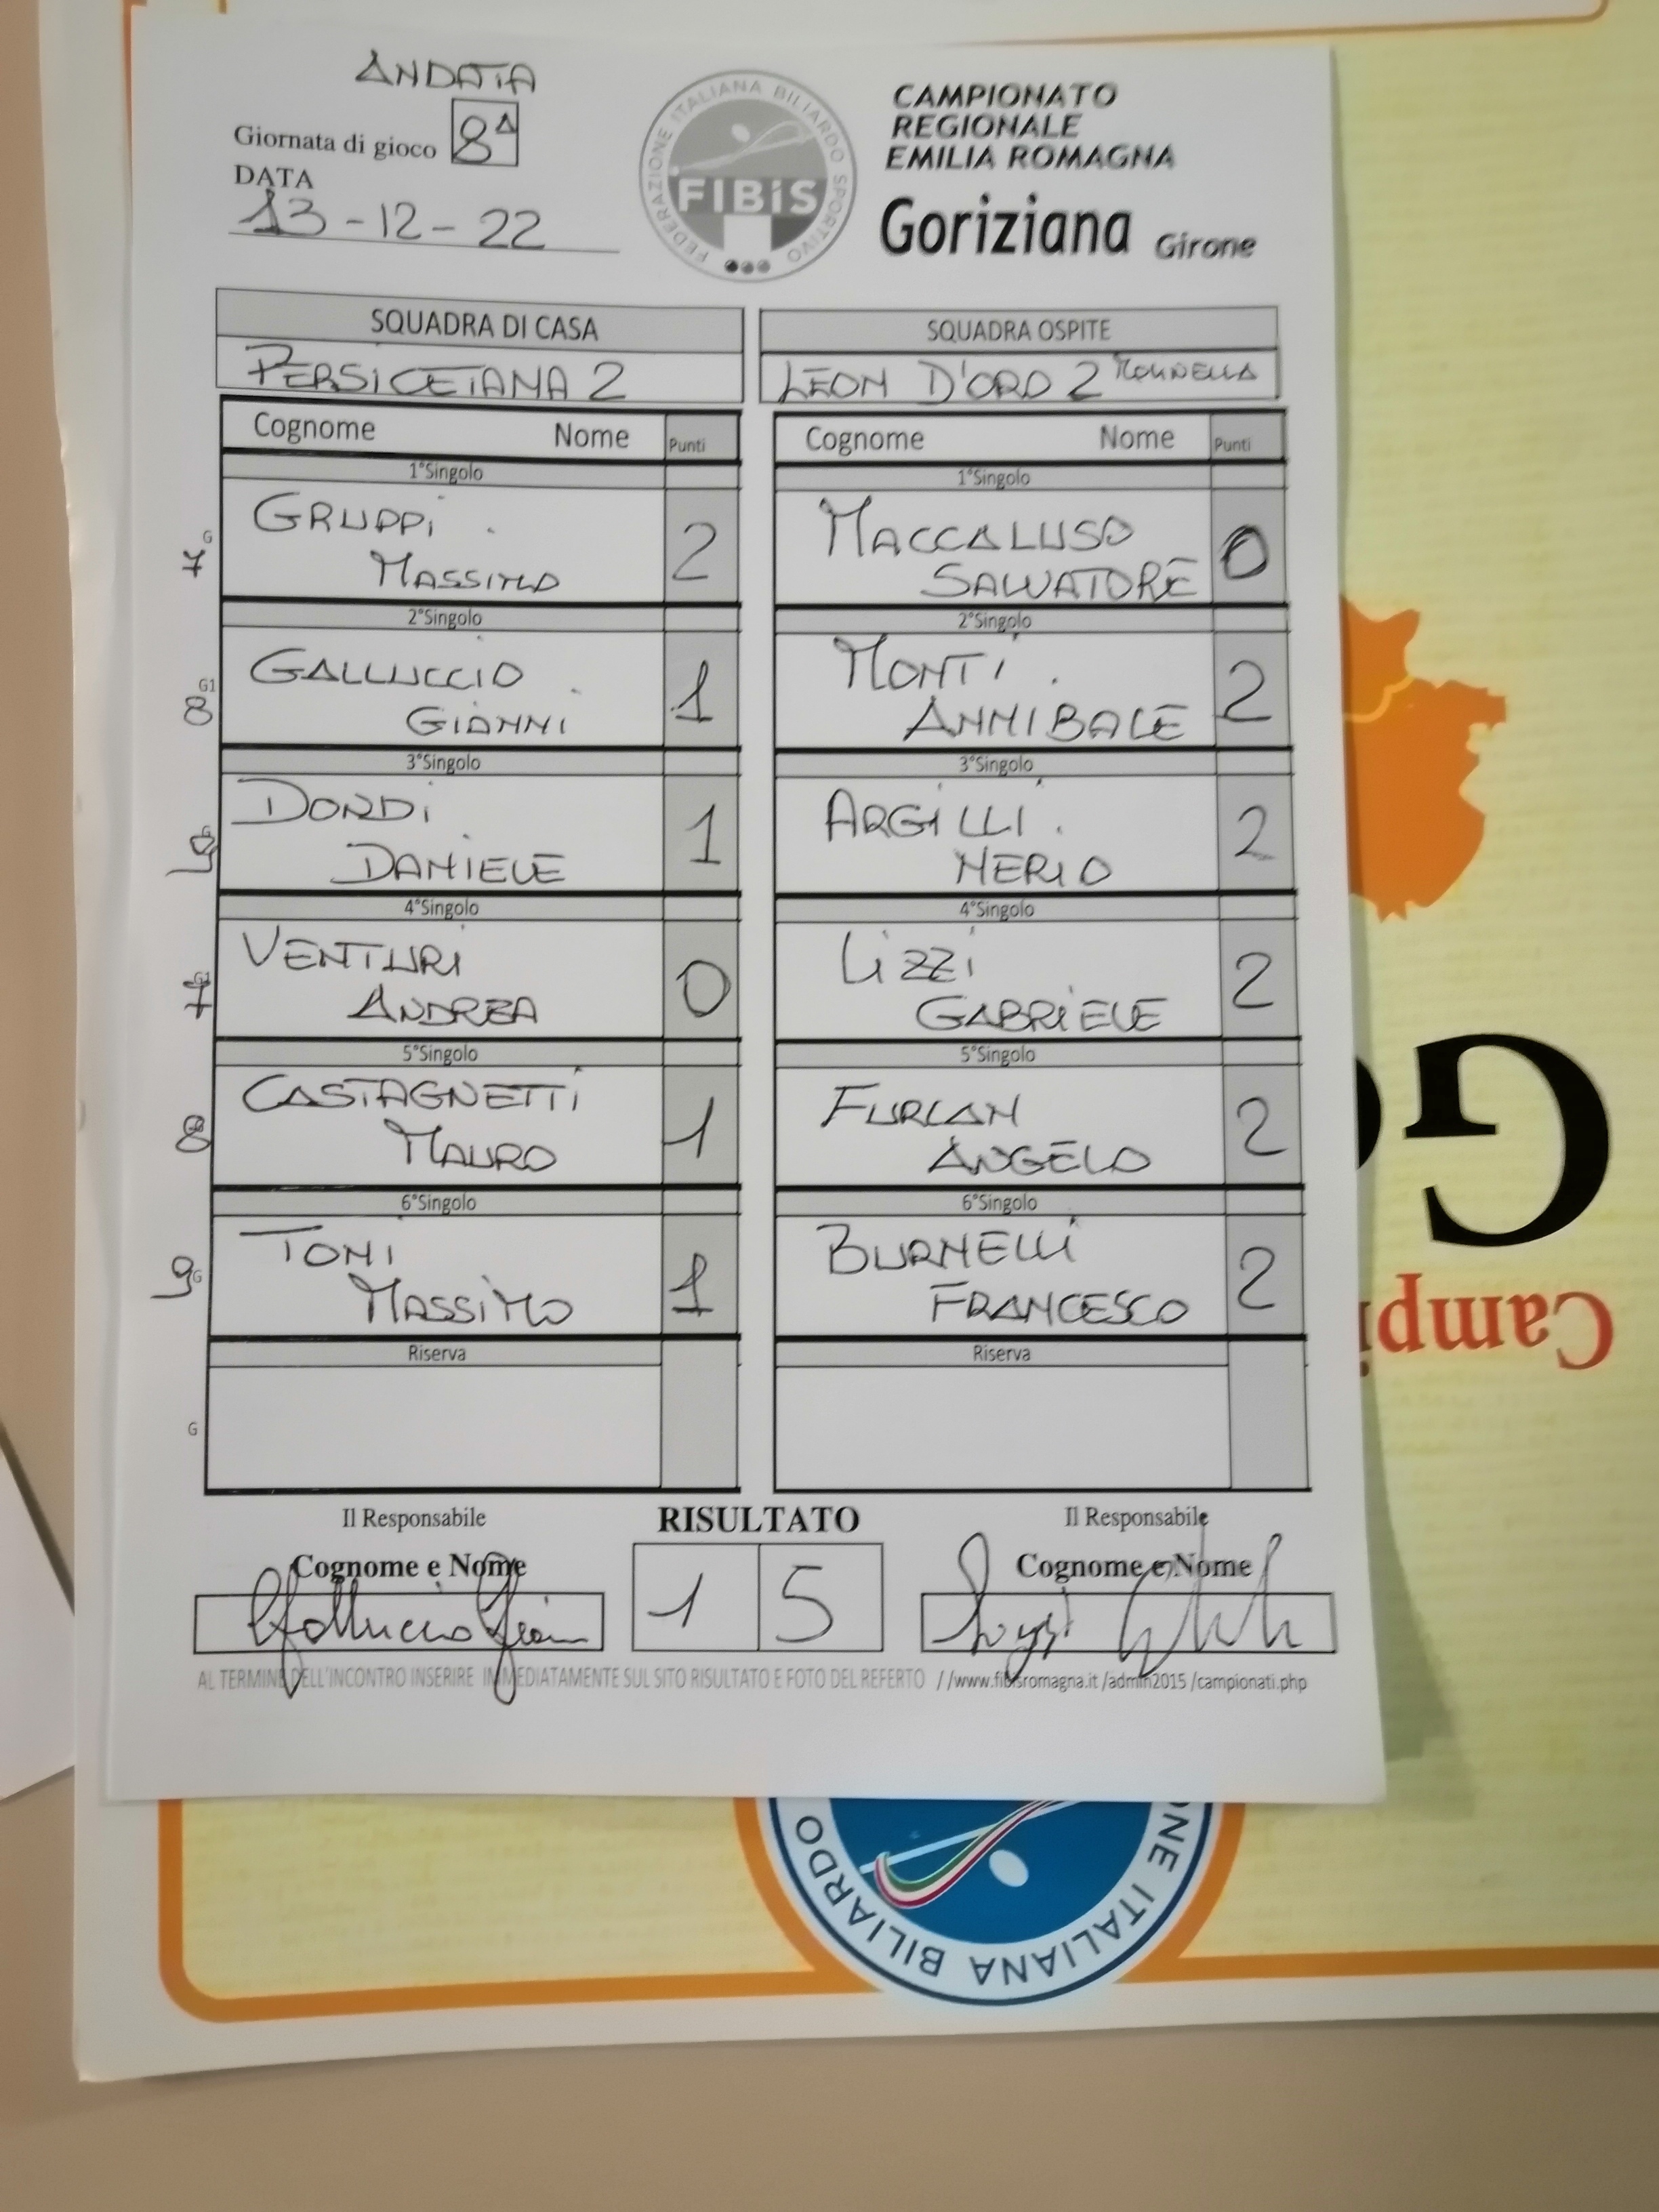 ANDATA
Giornata di gioco 8ᴬ
DATA
13-12-22
FEDERAZIONE ITALIANA BILIARDO SPORTIVO
FIBiS
CAMPIONATO
REGIONALE
EMILIA ROMAGNA
Goriziana Girone
SQUADRA DI CASA SQUADRA OSPITE
PERSICETANA 2 LEON D'ORO 2
Cognome Nome Punti Cognome Nome Punti
1°Singolo 1°Singolo
G
7 GRUPPI MASSIMO 2 MACCALUSO SALVATORE 0
2°Singolo 2°Singolo
G1
8 GALLUCCIO GIANNI 1 MONTI ANNIBALE 2
3°Singolo 3°Singolo
G
9 DONDI DANIELE 1 ARGILLI NERIO 2
4°Singolo 4°Singolo
G1
7 VENTURI ANDREA 0 LIZZI GABRIELE 2
5°Singolo 5°Singolo
8 CASTAGNETTI MAURO 1 FURLAN ANGELO 2
6°Singolo 6°Singolo
G
9 TONI MASSIMO 1 BURNELLI FRANCESCO 2
Riserva Riserva
G
Il Responsabile RISULTATO Il Responsabile
Cognome e Nome 1 5 Cognome e Nome
Galluccio Gianni
AL TERMINE DELL'INCONTRO INSERIRE IMMEDIATAMENTE SUL SITO RISULTATO E FOTO DEL REFERTO //www.fibisromagna.it /admin2015 /campionati.php
Go
Campi
ONE ITALIANA BILIARDO